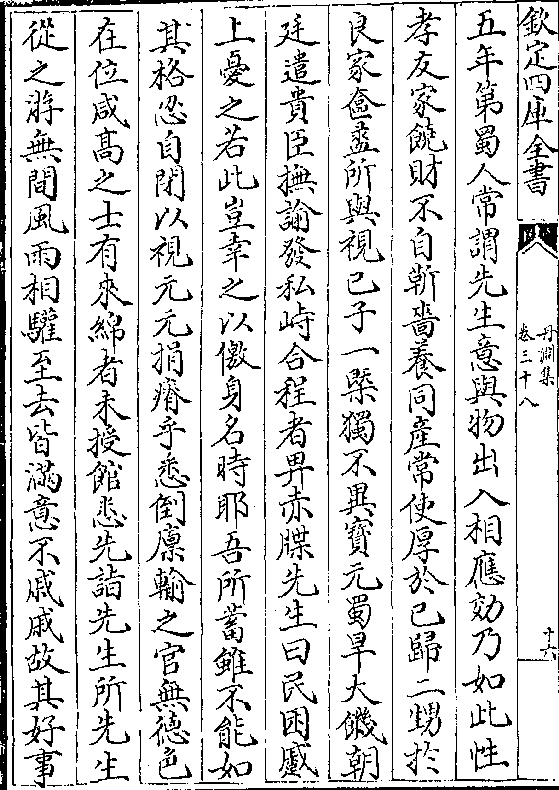 欽定四庫全書
丹淵集
卷三十八
十六
五年第蜀人常謂先生意與物出入相應効乃如此性
孝友家饒財不自靳嗇養同產常使厚於已歸二甥於
良家奩𥁞所與視已子一槩獨不異寶元蜀旱大饑朝
廷遣貴臣撫諭發私峙合程者畀赤牒先生曰民困慼
上憂之若此豈幸之以儌身名時耶吾所蓄雖不能如
其格忍自閉以視元元捐瘠乎悉倒廪輸之官無德色
在位咸髙之士有來綿者未授館悉先詣先生所先生
從之游無間風雨相驩至去皆滿意不戚戚故其好事